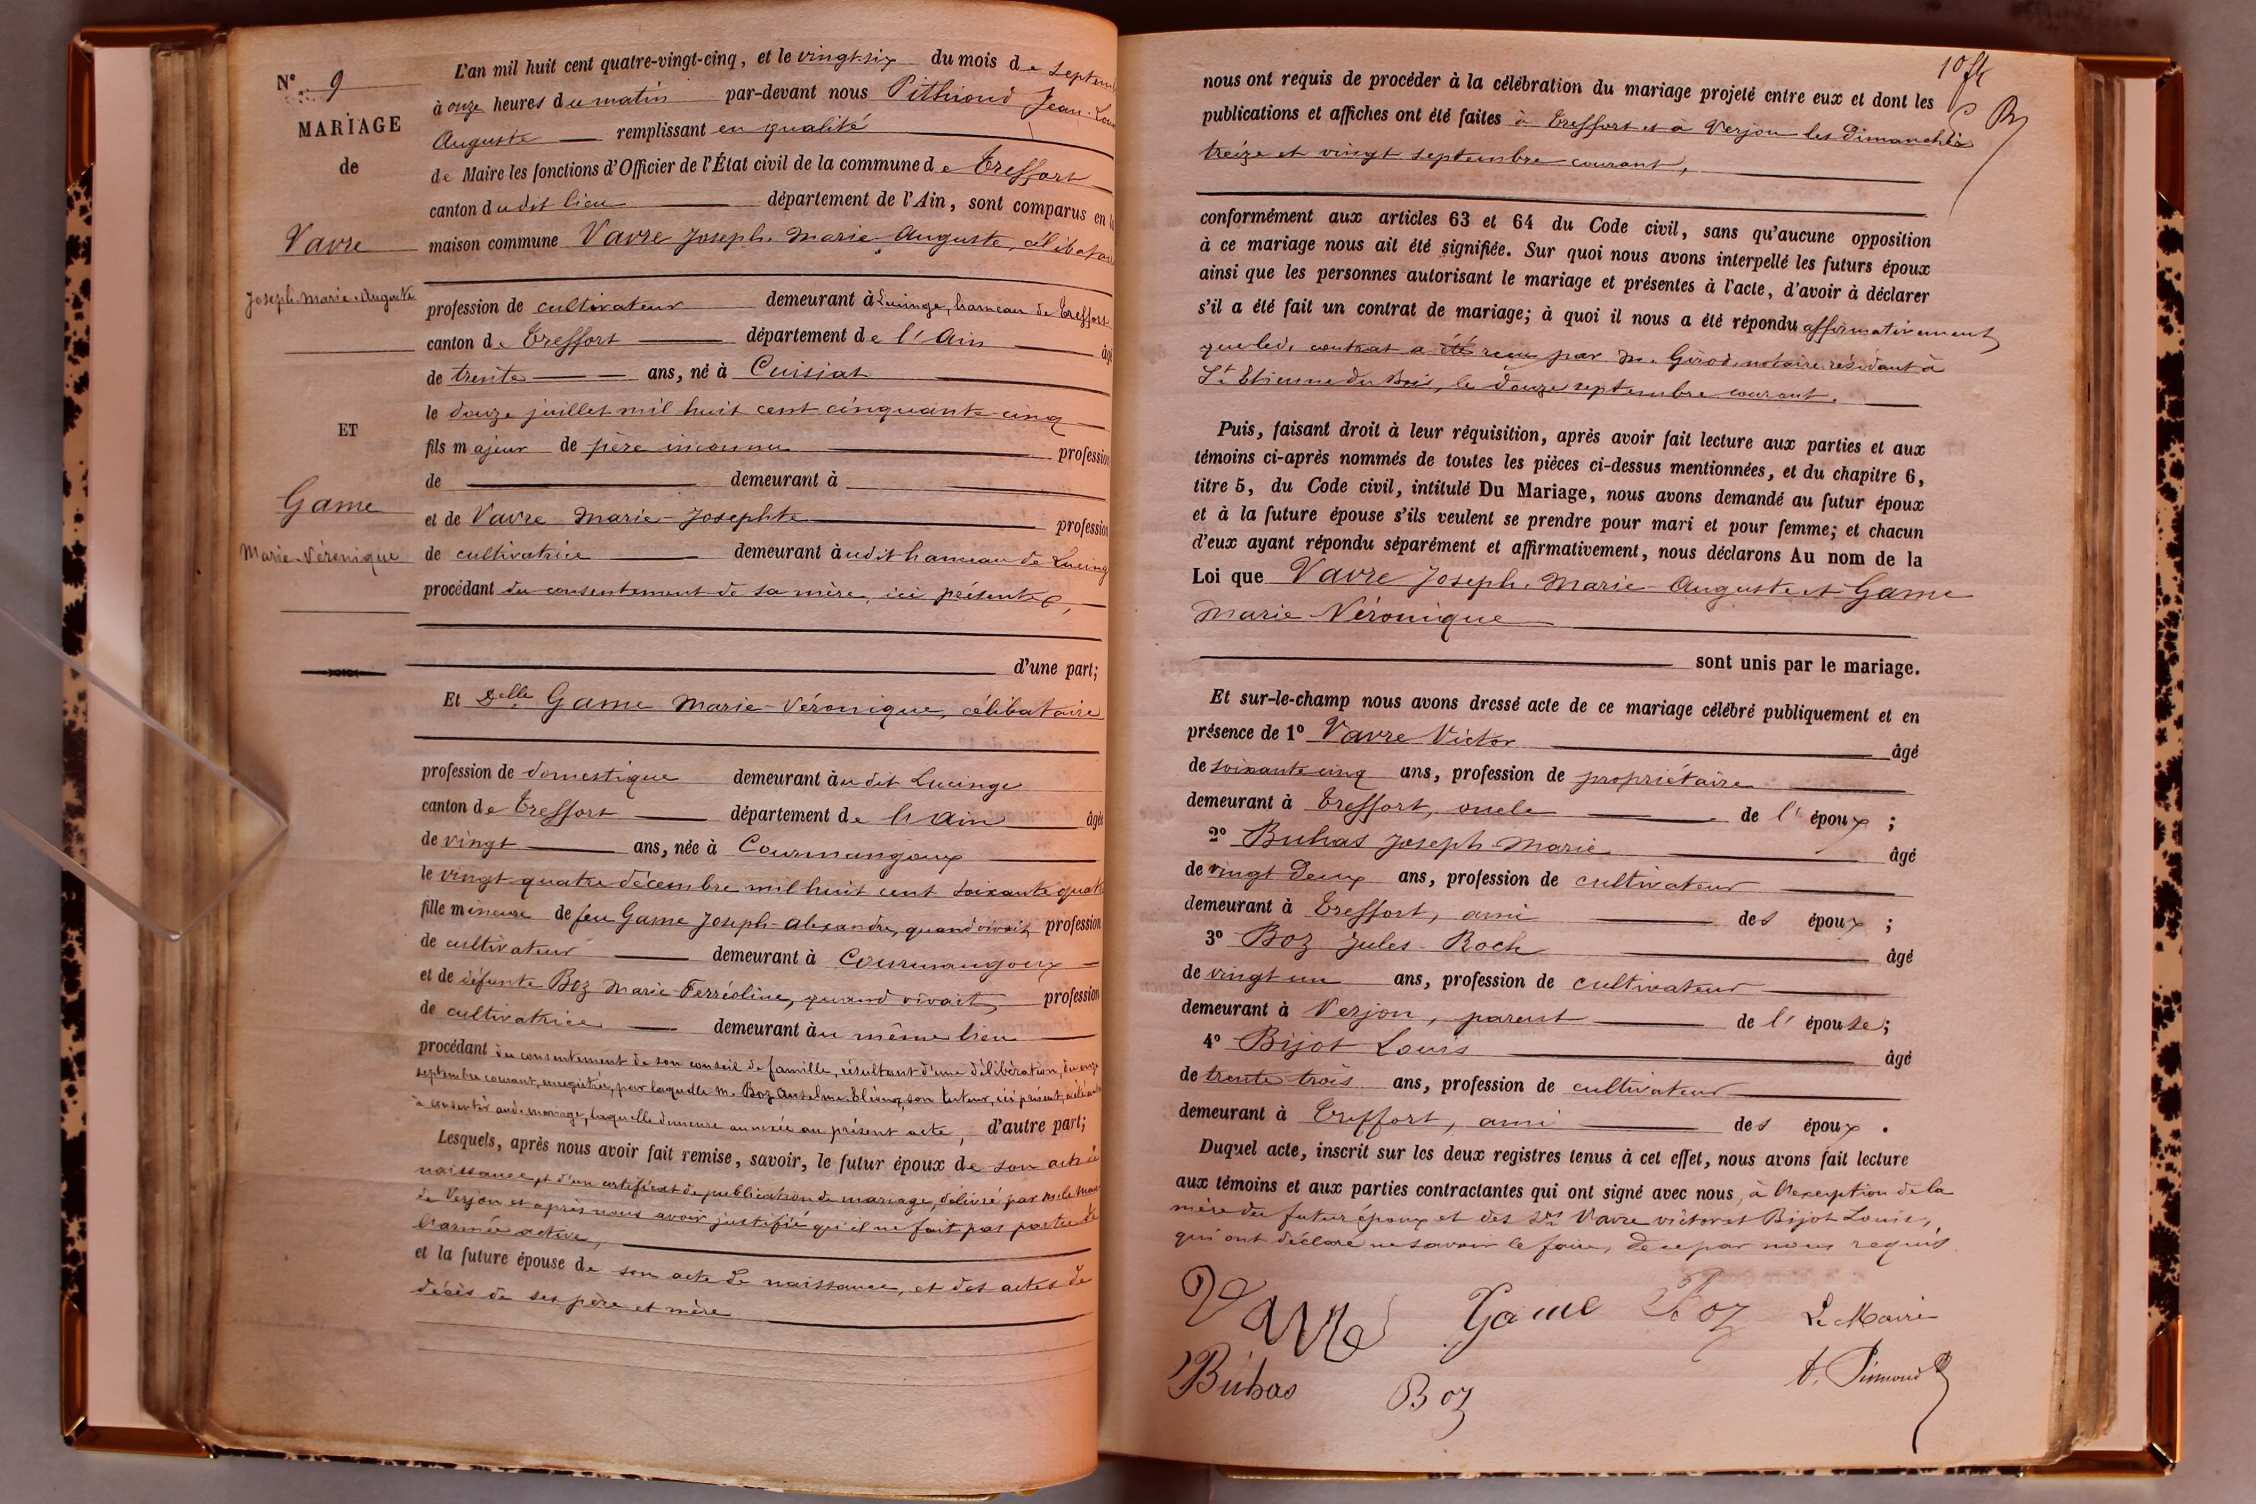 N° 9
MARIAGE
de
Vavre
Joseph-Marie-Auguste
ET
Game
Marie-Véronique
L'an mil huit cent quatre-vingt-cinq, et le vingt-six du mois de septem
à onze heures du matin par-devant nous Pithioud Jean-Lou
Auguste remplissant en qualité
de Maire les fonctions d'Officier de l'État civil de la commune de Treffort
canton dudit lieu département de l'Ain, sont comparus en la
maison commune Vavre Joseph-Marie-Auguste, célibataire
profession de cultivateur demeurant à Lucinge, hameau de Treffort
canton de Treffort département de l'Ain âgé
de trente ans, né à Cuisiat
le douze juillet mil huit cent cinquante-cinq
fils majeur de père inconnu profession
de demeurant à
et de Vavre Marie-Josephte profession
de cultivatrice demeurant audit hameau de Lucing
procédant du consentement de sa mère, ici présente,
d'une part;
Et Delle Game Marie-Véronique, célibataire
profession de domestique demeurant audit Lucinge
canton de Treffort département de l'Ain âgée
de vingt ans, née à Courmangoux
le vingt quatre décembre mil huit cent soixante quatr
fille mineure de feu Game Joseph-Alexandre, quand vivait, profession
de cultivateur demeurant à Courmangoux
et de défunte Boz Marie-Ferréoline, quand vivait, profession
de cultivatrice demeurant au même lieu
procédant du consentement de son conseil de famille, résultant d'une délibération, du onze
septembre courant, enregistrée, par laquelle M. Boz Anselme, son tuteur, ici présent, a été
à consentir audit mariage, laquelle demeure annexée au présent acte, d'autre part;
Lesquels, après nous avoir fait remise, savoir, le futur époux de son acte de
naissance et d'un certificat de publication de mariage, délivré par M. le Maire
de Verjon et après nous avoir justifié qu'il ne fait pas partie de
l'armée active,
et la future épouse de son acte de naissance, et des actes de
décès de ses père et mère
10 ff
nous ont requis de procéder à la célébration du mariage projeté entre eux et dont les
publications et affiches ont été faites à Treffort et à Verjon les Dimanches
treize et vingt septembre courant,
conformément aux articles 63 et 64 du Code civil, sans qu'aucune opposition
à ce mariage nous ait été signifiée. Sur quoi nous avons interpellé les futurs époux
ainsi que les personnes autorisant le mariage et présentes à l'acte, d'avoir à déclarer
s'il a été fait un contrat de mariage; à quoi il nous a été répondu affirmativement
que led. contrat a été reçu par M. Girod, notaire résidant à
St Etienne du Bois, le douze septembre courant.
Puis, faisant droit à leur réquisition, après avoir fait lecture aux parties et aux
témoins ci-après nommés de toutes les pièces ci-dessus mentionnées, et du chapitre 6,
titre 5, du Code civil, intitulé Du Mariage, nous avons demandé au futur époux
et à la future épouse s'ils veulent se prendre pour mari et pour femme; et chacun
d'eux ayant répondu séparément et affirmativement, nous déclarons Au nom de la
Loi que Vavre Joseph-Marie-Auguste et Game
Marie-Véronique
sont unis par le mariage.
Et sur-le-champ nous avons dressé acte de ce mariage célébré publiquement et en
présence de 1° Vavre Victor âgé
de soixante cinq ans, profession de propriétaire
demeurant à Treffort, oncle de l'époux ;
2° Buhas Joseph-Marie âgé
de vingt Deux ans, profession de cultivateur
demeurant à Treffort, ami des époux ;
3° Boz Jules-Roch âgé
de vingt un ans, profession de cultivateur
demeurant à Verjon, parent de l'épouse;
4° Bijot Louis âgé
de trente trois ans, profession de cultivateur
demeurant à Treffort, ami des époux .
Duquel acte, inscrit sur les deux registres tenus à cet effet, nous avons fait lecture
aux témoins et aux parties contractantes qui ont signé avec nous, à l'exception de la
mère du futur époux et des srs Vavre victor et Bijot Louis,
qui ont déclaré ne savoir le faire, de ce par nous requis.
Vavre Game Boz Le Maire
Buhas Boz